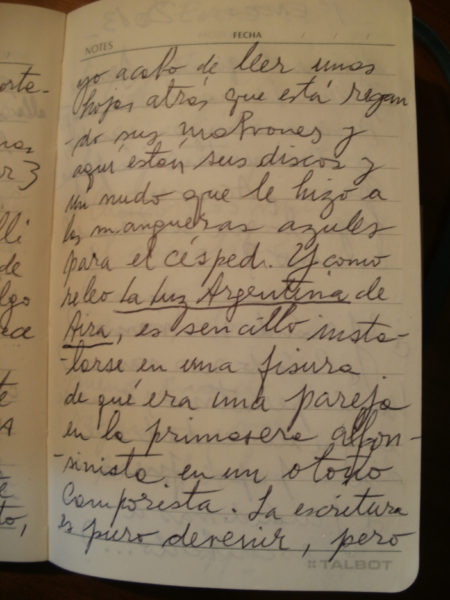 NOTES
FECHA
yo acabo de leer unas
hojas atrás que está regan
-do sus malvones y
aquí están sus discos y
un nudo que le hizo a
las mangueras azules
para el césped. Y como
releo La Luz Argentina de
Aira, es sencillo insta-
-larse en una fisura
de qué era una pareja
en la primavera alfon-
-sinista en un otoño
Camporista. La escritura
es puro devenir, pero
TALBOT